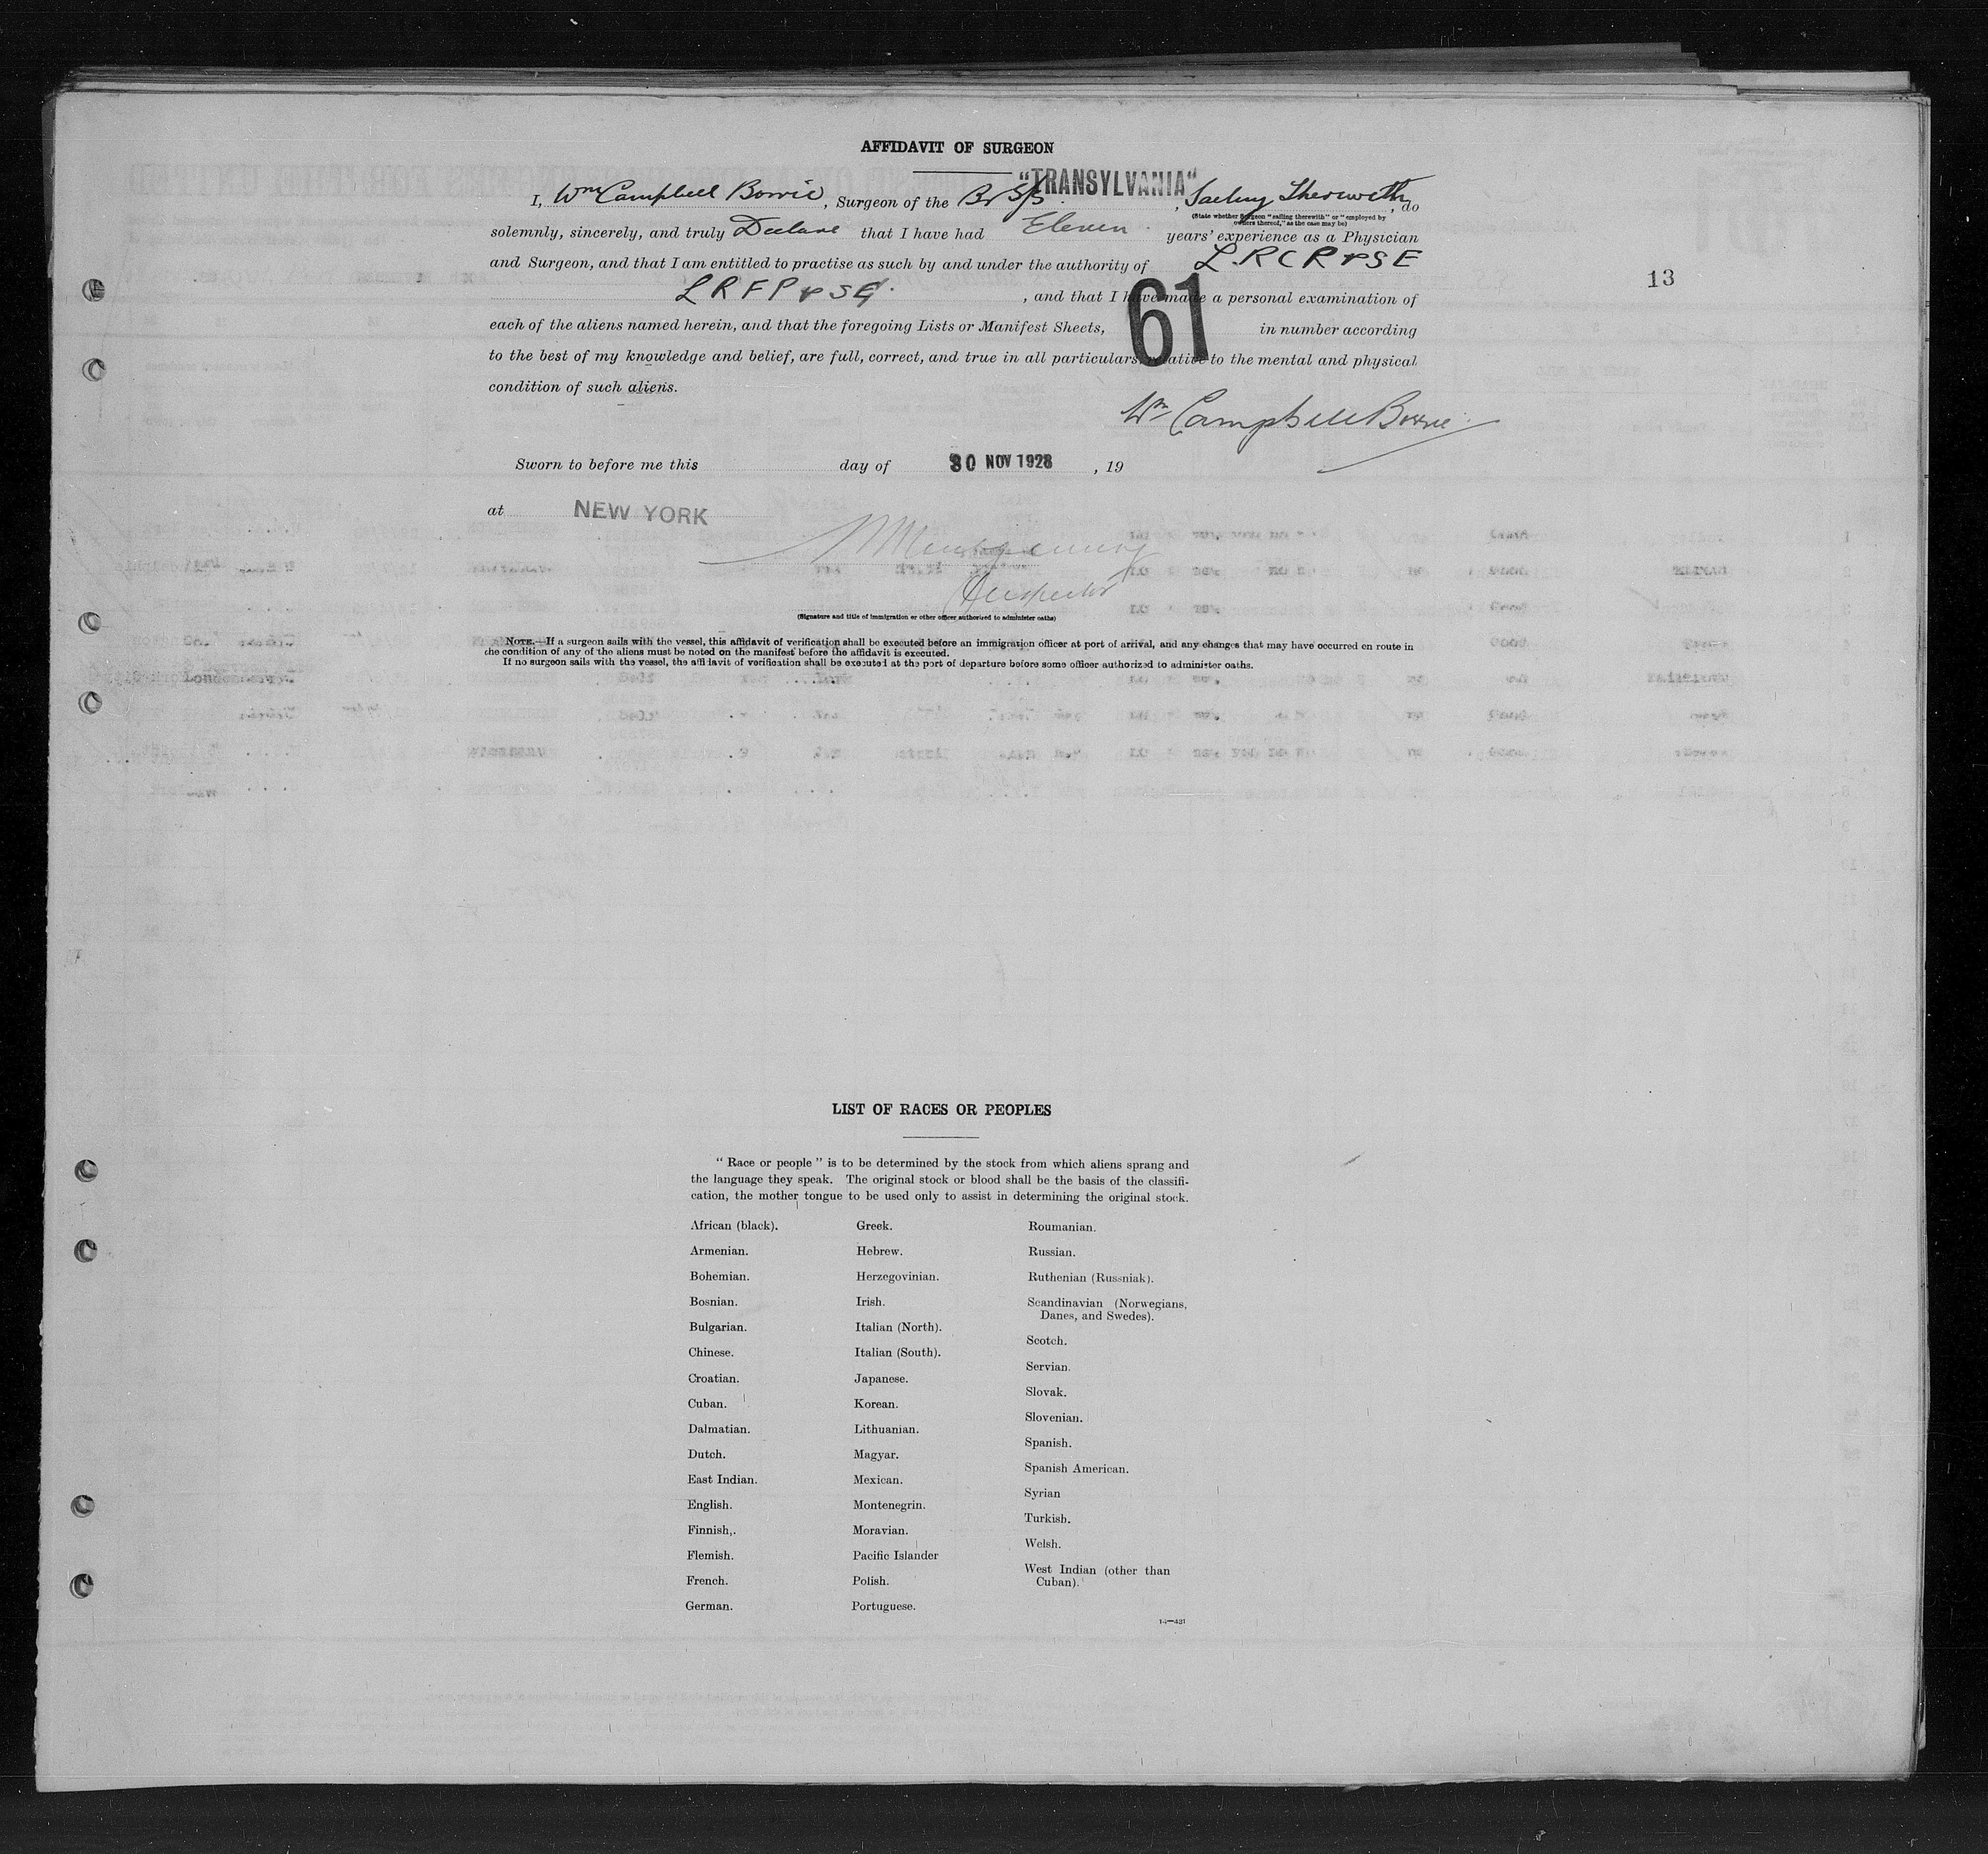 AFFIDAVIT OF SURGEON
I, Wm Campbell Bowie, Surgeon of the Br S/S "TRANSYLVANIA", Sailing Therewith, do
(State whether Surgeon "sailing therewith" or "employed by
owners thereof," as the case may be)
solemnly, sincerely, and truly Declare that I have had Eleven years' experience as a Physician
and Surgeon, and that I am entitled to practise as such by and under the authority of L.RCP&SE
13
LRFP&SG. , and that I have made a personal examination of
each of the aliens named herein, and that the foregoing Lists or Manifest Sheets, 61 in number according
to the best of my knowledge and belief, are full, correct, and true in all particulars relative to the mental and physical
condition of such aliens.
Wm Campbell Bowie
Sworn to before me this day of 30 NOV 1928, 19
at NEW YORK
Inspector
(Signature and title of immigration or other officer authorized to administer oaths)
NOTE.—If a surgeon sails with the vessel, this affidavit of verification shall be executed before an immigration officer at port of arrival, and any changes that may have occurred en route in
the condition of any of the aliens must be noted on the manifest before the affidavit is executed.
If no surgeon sails with the vessel, the affidavit of verification shall be executed at the port of departure before some officer authorized to administer oaths.
LIST OF RACES OR PEOPLES
"Race or people" is to be determined by the stock from which aliens sprang and
the language they speak. The original stock or blood shall be the basis of the classifi-
cation, the mother tongue to be used only to assist in determining the original stock.
African (black).
Armenian.
Bohemian.
Bosnian.
Bulgarian.
Chinese.
Croatian.
Cuban.
Dalmatian.
Dutch.
East Indian.
English.
Finnish,.
Flemish.
French.
German.
Greek.
Hebrew.
Herzegovinian.
Irish.
Italian (North).
Italian (South).
Japanese.
Korean.
Lithuanian.
Magyar.
Mexican.
Montenegrin.
Moravian.
Pacific Islander
Polish.
Portuguese.
Roumanian.
Russian.
Ruthenian (Russniak).
Scandinavian (Norwegians,
Danes, and Swedes).
Scotch.
Servian.
Slovak.
Slovenian.
Spanish.
Spanish American.
Syrian
Turkish.
Welsh.
West Indian (other than
Cuban).